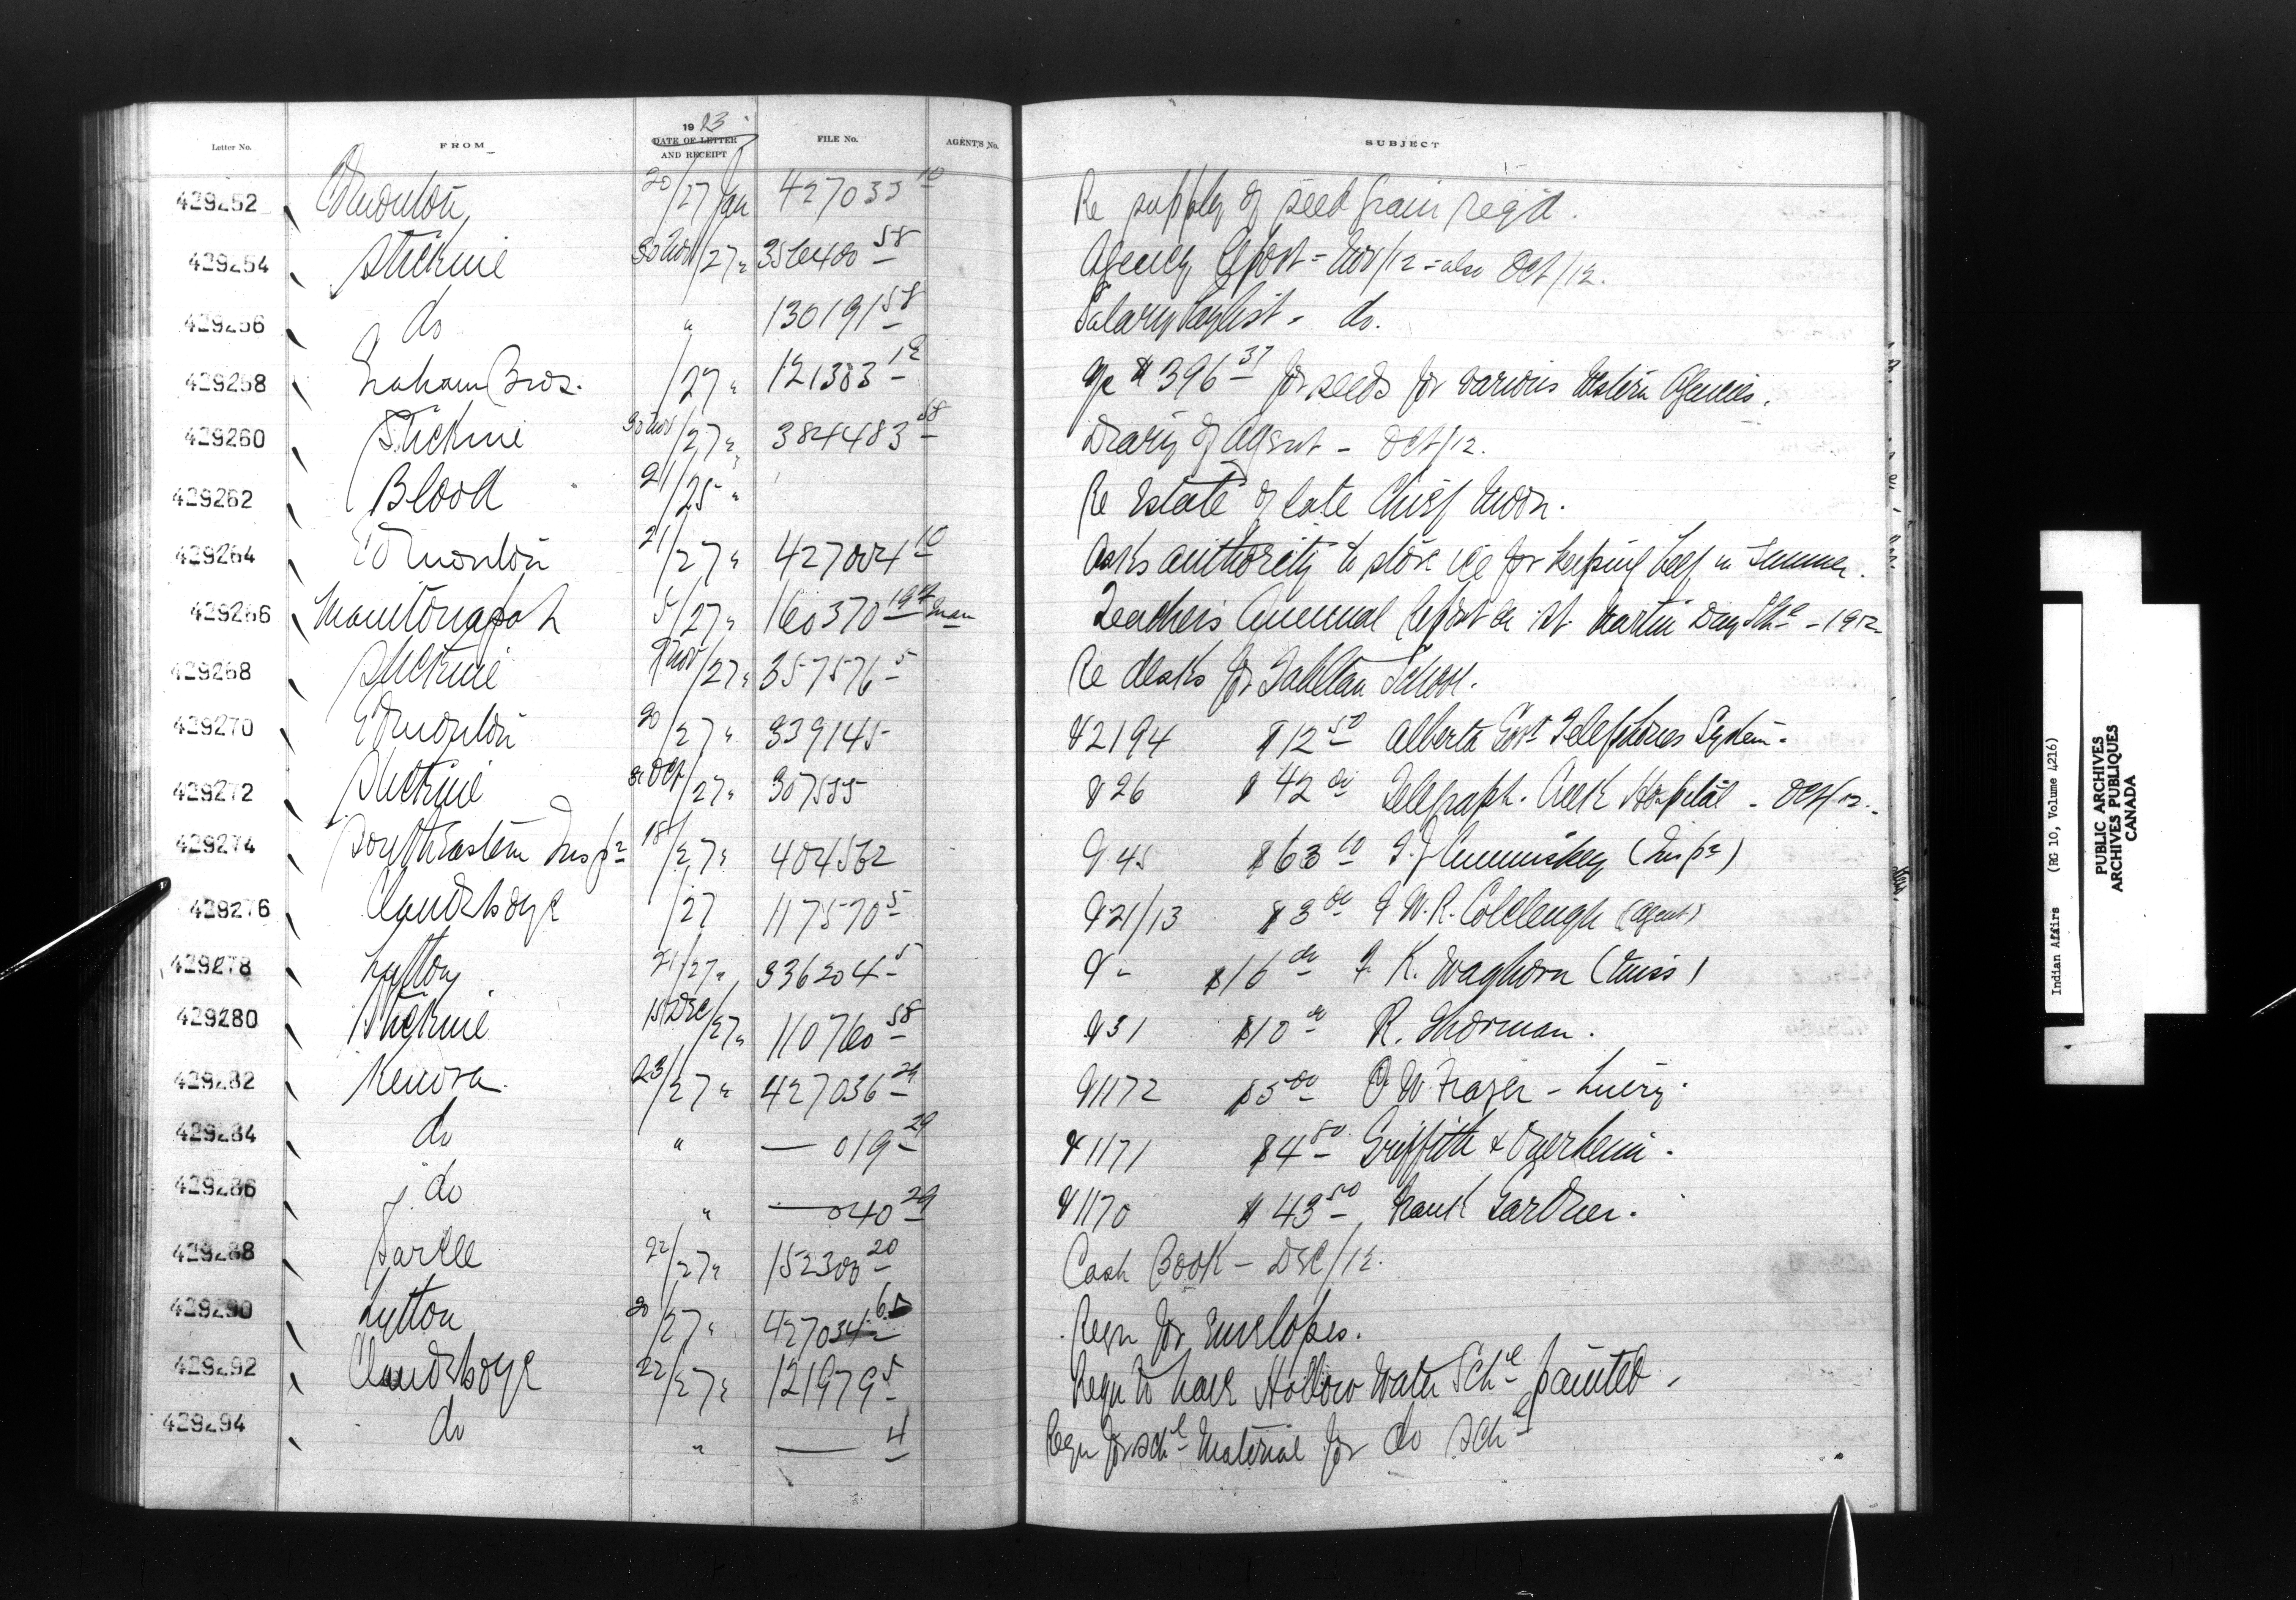 Letter No. FROM 1913 DATE OF LETTER AND RECEIPT FILE No. AGENT'S No. SUBJECT
429252 Edmonton 20/27 Jan 427033 10 Re supply of seed grain reqd.
429254 Stickine 30 Nov/27 " 356400 58 Agency Report = Nov/12 = also Oct/12.
429256 do " 130191 58 Salary Paylist - do.
429258 Graham Bros. /27 " 121383 12 a/c $396 37 for seeds for various Western Agencies.
429260 Stickine 30 Nov/27 " 384483 58 Diary of Agent - Oct/12.
429262 Blood 21/25 " Re Estate of late Chief Moon.
429264 Edmonton 21/27 " 427004 10 Asks authority to store ice for keeping beef in Summer.
429266 Manitowapah 5/27 " 160370 Man Teacher's Annual Report St. Martin Day Schl - 1912
429268 Stickine Nov/27 " 357576 5 Re desks for Tahltan School.
429270 Edmonton 20/27 " 339145 V 2194 $12 50 Alberta Govt Telephones System.
429272 Stickine 31 Oct/27 " 307555 V 26 $42 00 Telegraph Creek Hospital - Oct/12.
429274 South Eastern Inspr 18/27 " 404562 V 45 $63 60 Cummiskey (Inspr)
429276 Clandeboye /27 117570 5 V 21/13 $3 00 J. W. R. Colcleugh (Agent)
429278 Lytton 21/27 " 336204 5 V - $16 00 K. Waghorn (Miss)
429280 Stickine 15 Dec/27 " 110760 58 V 31 $10 00 R. Thorman.
429282 Kenora. 23/27 " 427036 29 V 1172 $5 00 W. Frazer - Livery.
429284 do " — 019 29 V 1171 $4 80 Griffith &
429286 do " — 040 29 V 1170 $43 50 Frank Gardner.
429288 Sarcee 22/27 " 152300 20 Cash Book - Dec/12.
429290 Lytton 20/27 " 427034 Reqn for Envelopes.
429292 Clandeboye 22/27 " 121979 5 Reqn to have Hollow Water Schl painted.
429294 do " — 4 Reqn for schl Material for do Schl
Indian Affairs (RG 10, Volume 4216)
PUBLIC ARCHIVES
ARCHIVES PUBLIQUES
CANADA